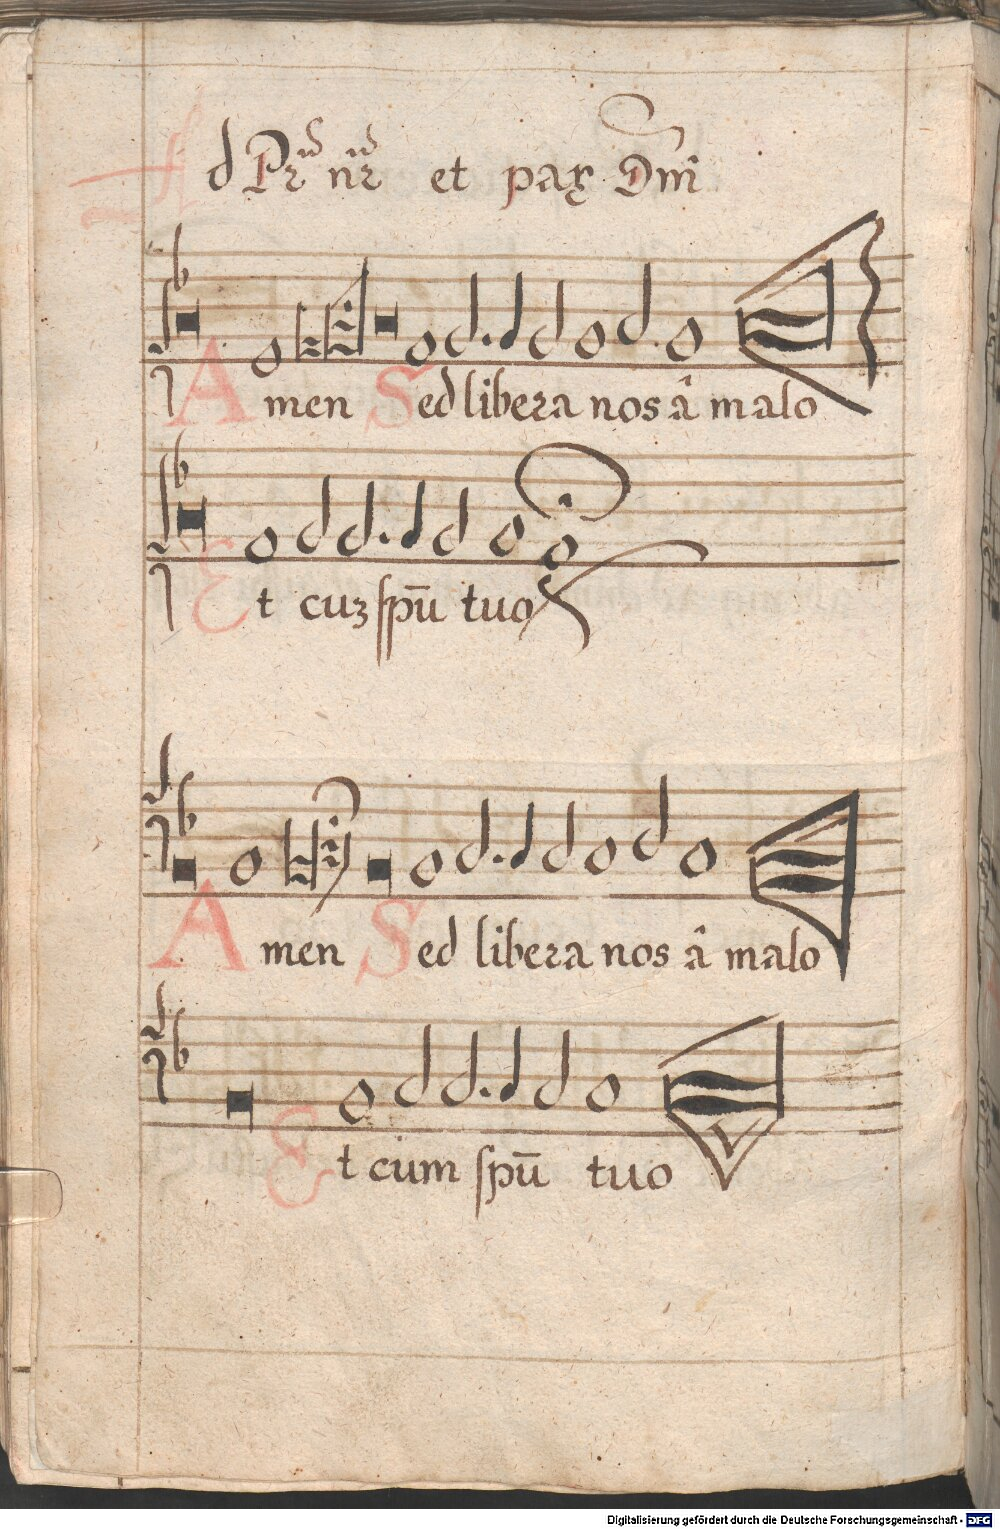 Ad Pr̄ nr̄ et pax Dn̄i
Amen Sed libera nos â malo
Et cuz spū tuo
Amen Sed libera nos â malo
Et cum spū tuo
Digitalisierung gefördert durch die Deutsche Forschungsgemeinschaft - DFG